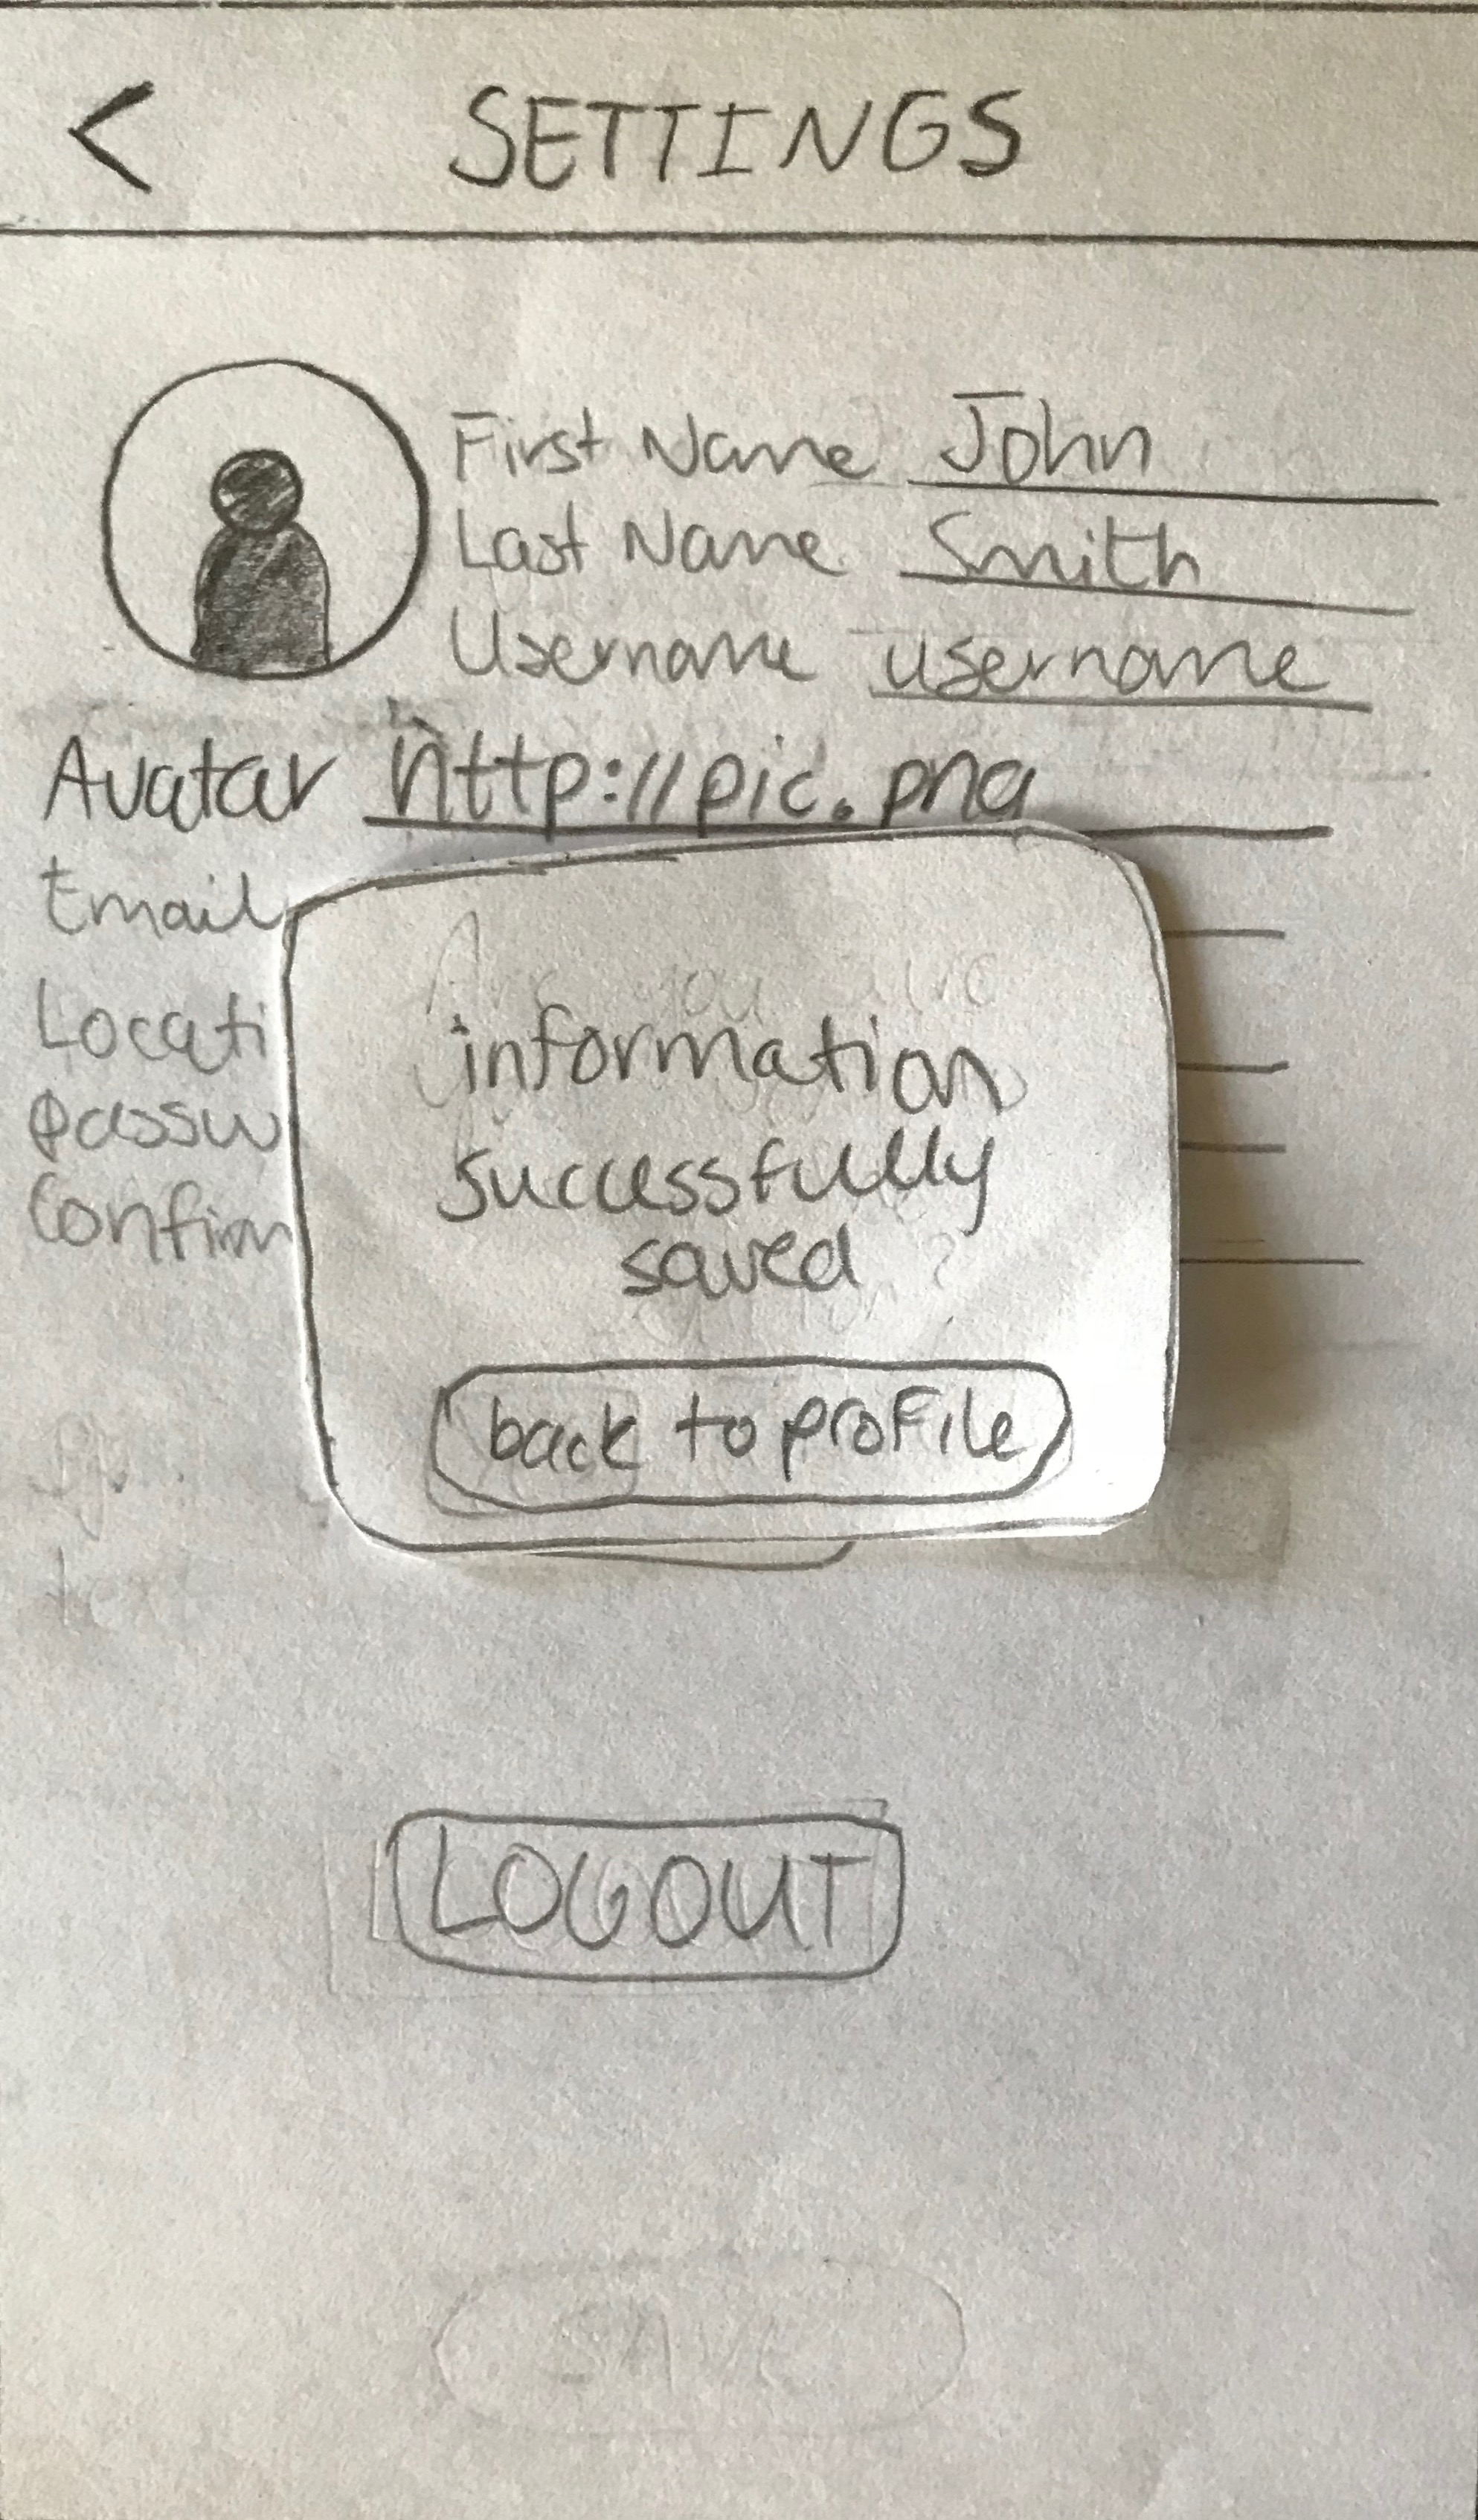 < SETTINGS
First Name John
Last Name Smith
Username username
Avatar http://pic.png
Email
Locati
passw
Confirm
Are you sure
information
successfully
saved
back to profile
text
LOGOUT
SAVE